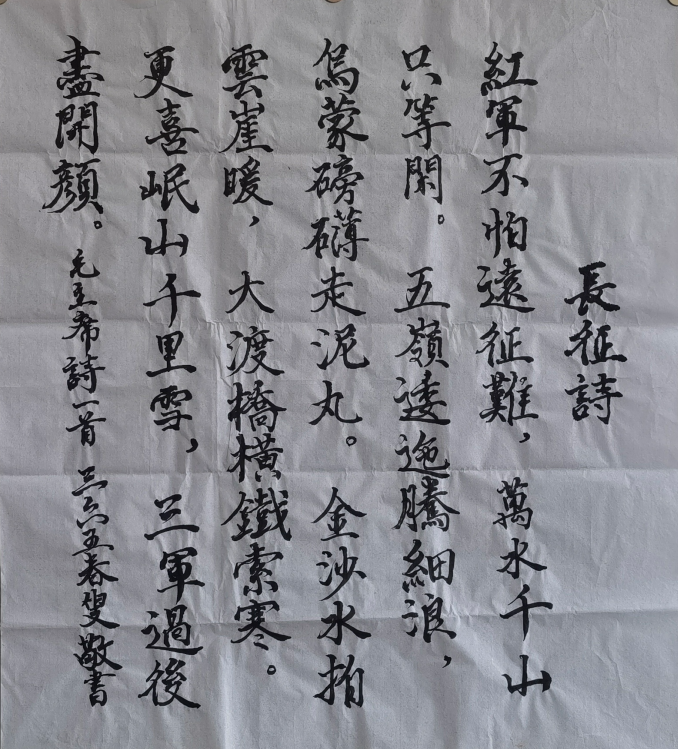 長征詩
紅軍不怕遠征難，萬水千山
只等閑。五嶺逶迤騰細浪，
烏蒙磅礴走泥丸。金沙水拍
雲崖暖，大渡橋橫鐵索寒。
更喜岷山千里雪，三軍過後
盡開顏。毛主席詩一首 三六五春叟敬書